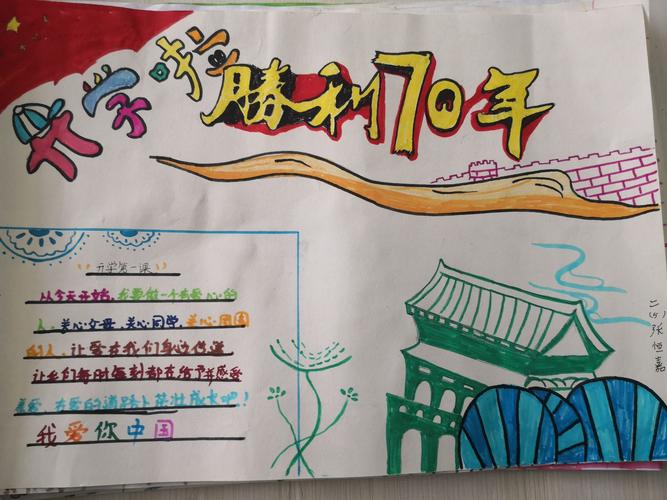 开学啦
勝利70年
开学第一课
从今天开始,我要做一个有爱心的
人。关心父母、关心同学、关心周围
的人。让爱在我们身边传递
让我们每时每刻都在给予并感受
爱。在爱的道路上茁壮成长吧!
我爱你中国
二(5)张恒嘉